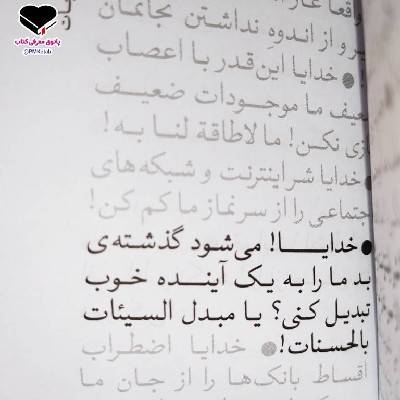 پاتوق معرفی کتاب
نجاتمان
رو از اندوه نداشتن
خدایا این قدر با اعصاب
ما موجودات ضعیف
نکن! ما لا طاقة لنا به!
خدایا شر اینترنت و شبکه‌های
جتماعی را از سر نماز ما کم کن!
● خدایـــا! می‌شود گذشته‌ی
بد ما را به یک آینده خوب
تبدیل کنی؟ یا مبدل السیئات
بالحسنات! ● خدایا اضطراب
اقساط بانک‌ها را از جان ما